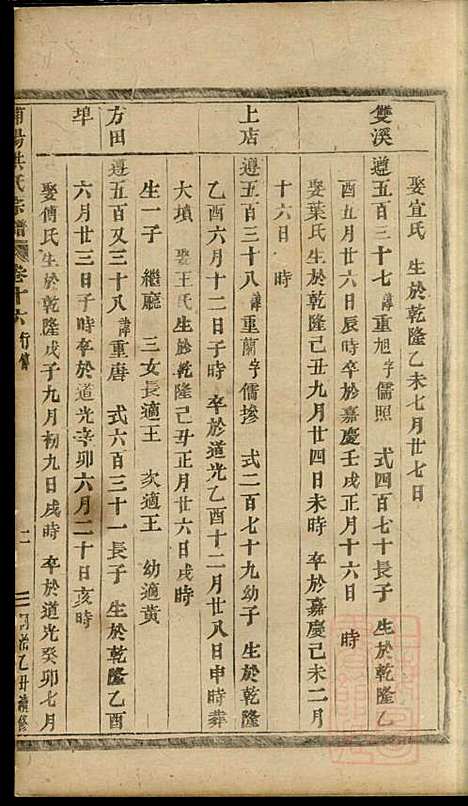 娶宜氏 生於乾隆乙未七月廿七日
雙溪 遵五百三十七 諱重旭字儒照 式四百七十長子 生於乾隆乙
酉五月廿六日辰時卒於嘉慶壬戌正月十六日 時
娶葉氏生於乾隆己丑九月廿四日未時 卒於嘉慶己未二月
十六日 時
上店 遵五百三十八 諱重蘭字儒摻 式二百七十九幼子 生於乾隆
乙酉六月十二日子時 卒於道光乙酉十二月廿八日申時葬
大墳 娶王氏生於乾隆己丑正月廿六日戌時
生一子 繼廳 三女長適王 次適王 幼適黃
方田 遵五百又三十八 諱重唐 式六百三十一長子 生於乾隆乙酉
埠 六月廿三日子時卒於道光辛卯六月二十日亥時
娶傅氏生於乾隆戊子九月初九日戌時 卒於道光癸卯七月
陽洪氏宗譜 卷十六 行傳 二 同治乙丑續修